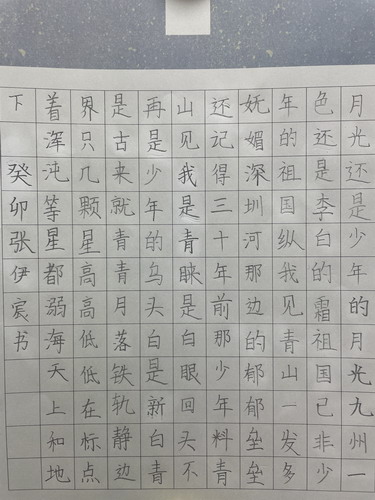 月光还是少年的月光九州一
色还是李白的霜祖国已非少
年的祖国纵我见青山一发多
妩媚深圳河那边的郁郁垒垒
还记得三十年前那少年料青
山见我是青睐是白眼回头不
再是少年的乌头白是新白青
是古来就青青月落铁轨静边
界只几颗星高高低低在标点
着浑沌等星都弱海天上和地
下 癸卯张伊宸书